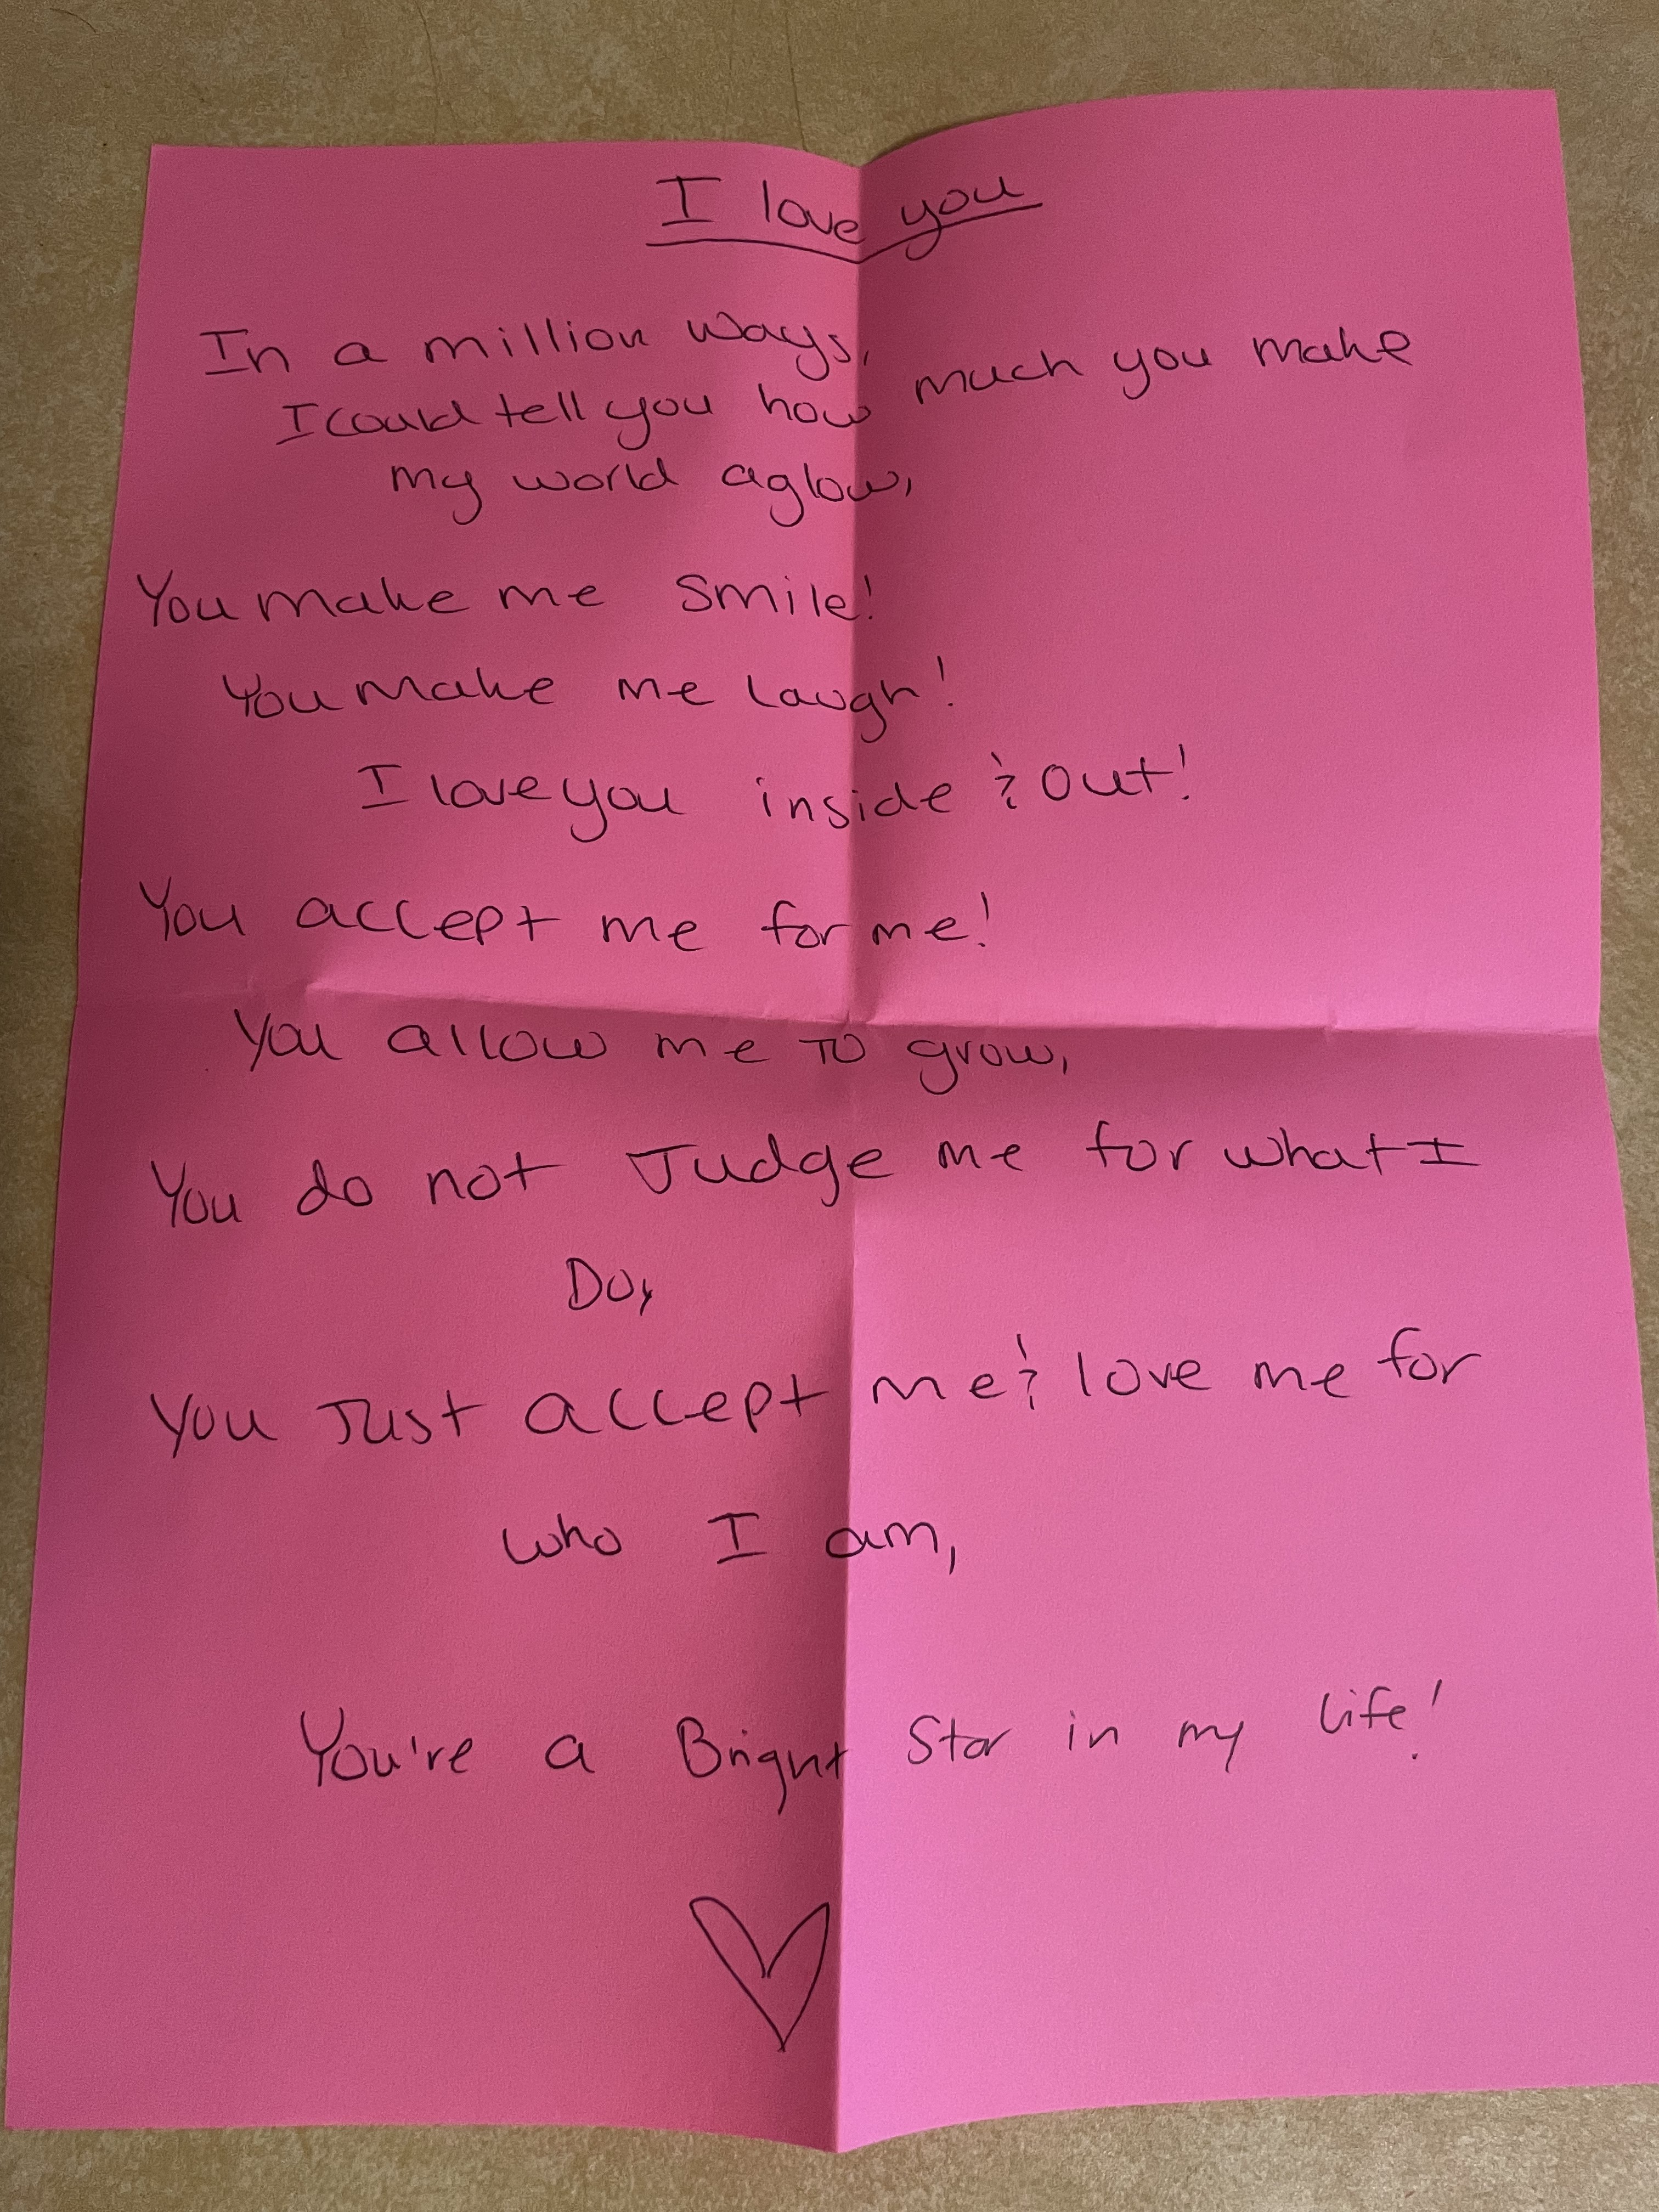 I love you
In a million ways,
I could tell you how much you make
my world aglow,
You make me smile!
You make me laugh!
I love you inside & out!
You accept me for me!
You allow me to grow,
You do not Judge me for what I
Do,
You Just accept me & love me for
who I am,
You're a Bright Star in my life!